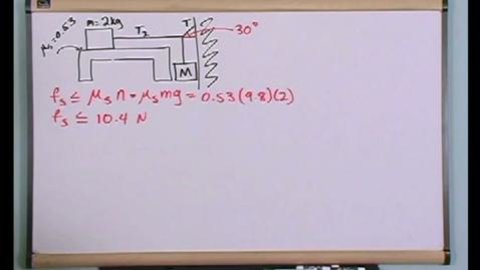 μs=0.53
m=2kg
T2
T
30°
M
fs ≤ μs n = μs mg = 0.53(9.8)(2)
fs ≤ 10.4 N